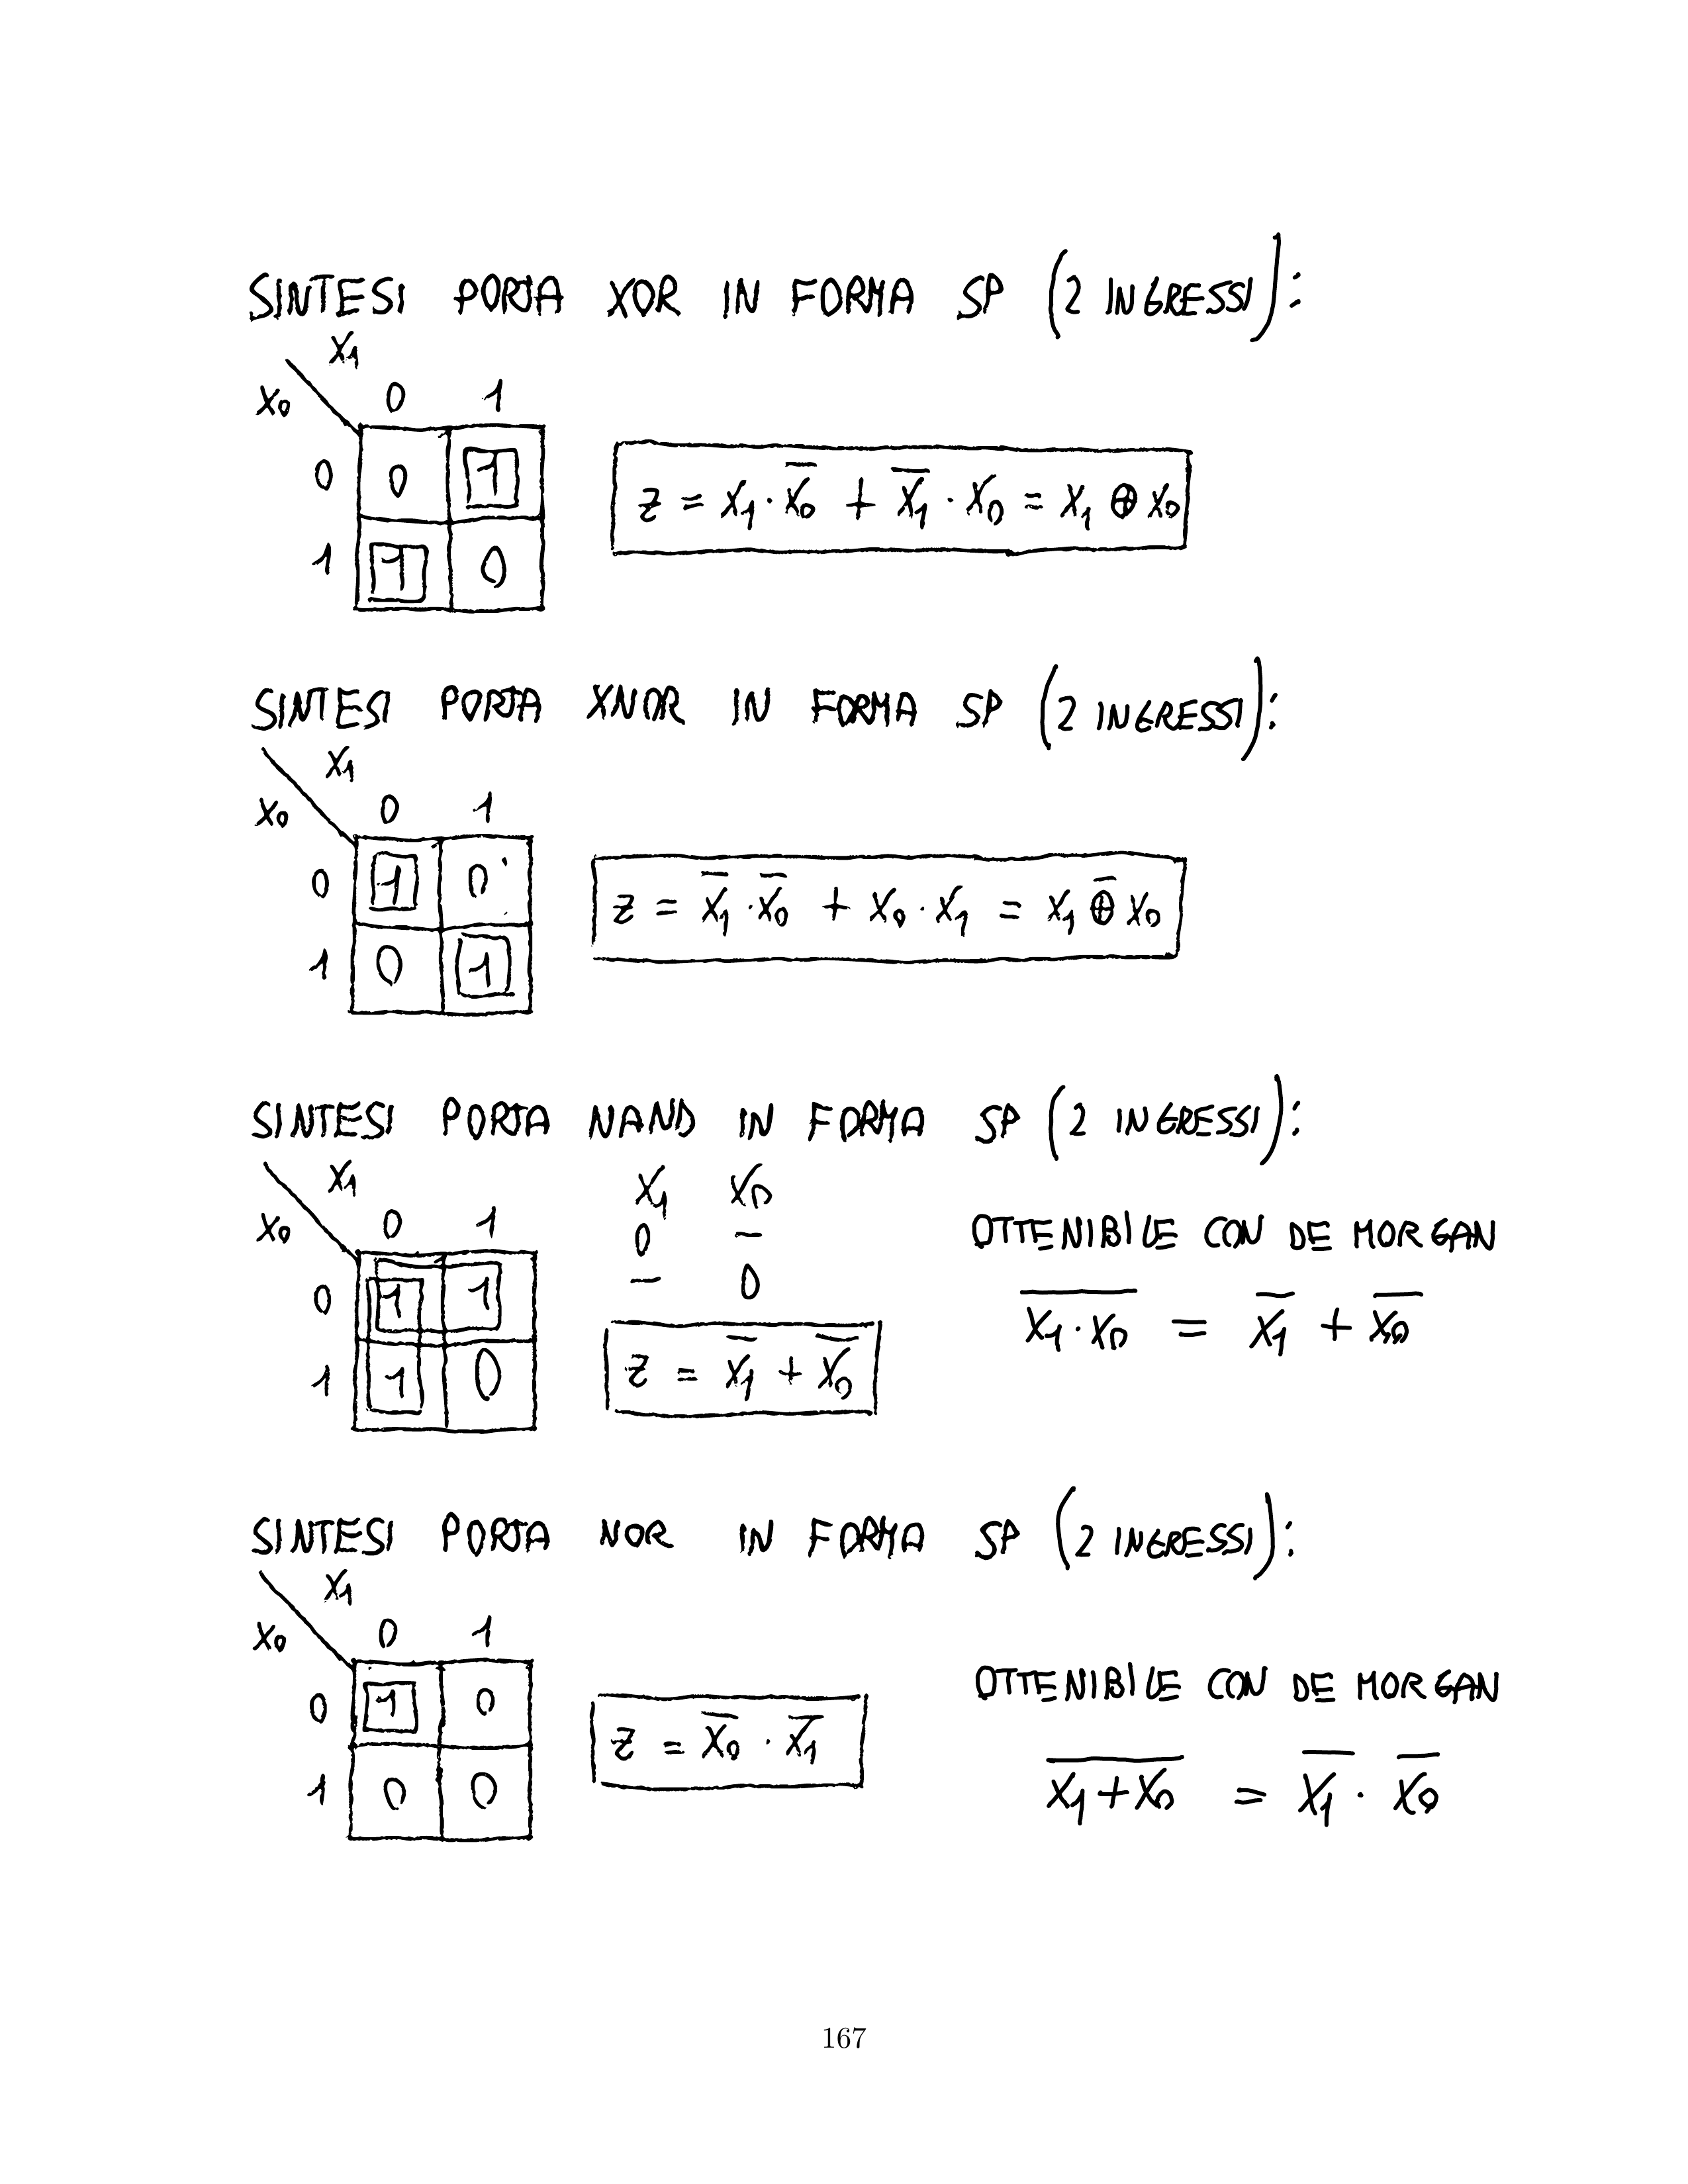 SINTESI PORTA XOR IN FORMA SP (2 INGRESSI):
X₁
X₀ 0 1
0 0 1
z = x₁·x̅₀ + x̅₁·x₀ = x₁ ⊕ x₀
1 1 0
SINTESI PORTA XNOR IN FORMA SP (2 INGRESSI):
X₁
X₀ 0 1
0 1 0
z = x̅₁·x̅₀ + x₀·x₁ = x₁ ⊕̅ x₀
1 0 1
SINTESI PORTA NAND IN FORMA SP (2 INGRESSI):
X₁
X₀ 0 1
0 1 1
1 1 0
X₁ X₀
0 –
– 0
z = x̅₁ + x̅₀
OTTENIBILE CON DE MORGAN
\overline{x₁·x₀} = x̅₁ + x̅₀
SINTESI PORTA NOR IN FORMA SP (2 INGRESSI):
X₁
X₀ 0 1
0 1 0
1 0 0
z = x̅₀·x̅₁
OTTENIBILE CON DE MORGAN
\overline{x₁+x₀} = x̅₁·x̅₀
167